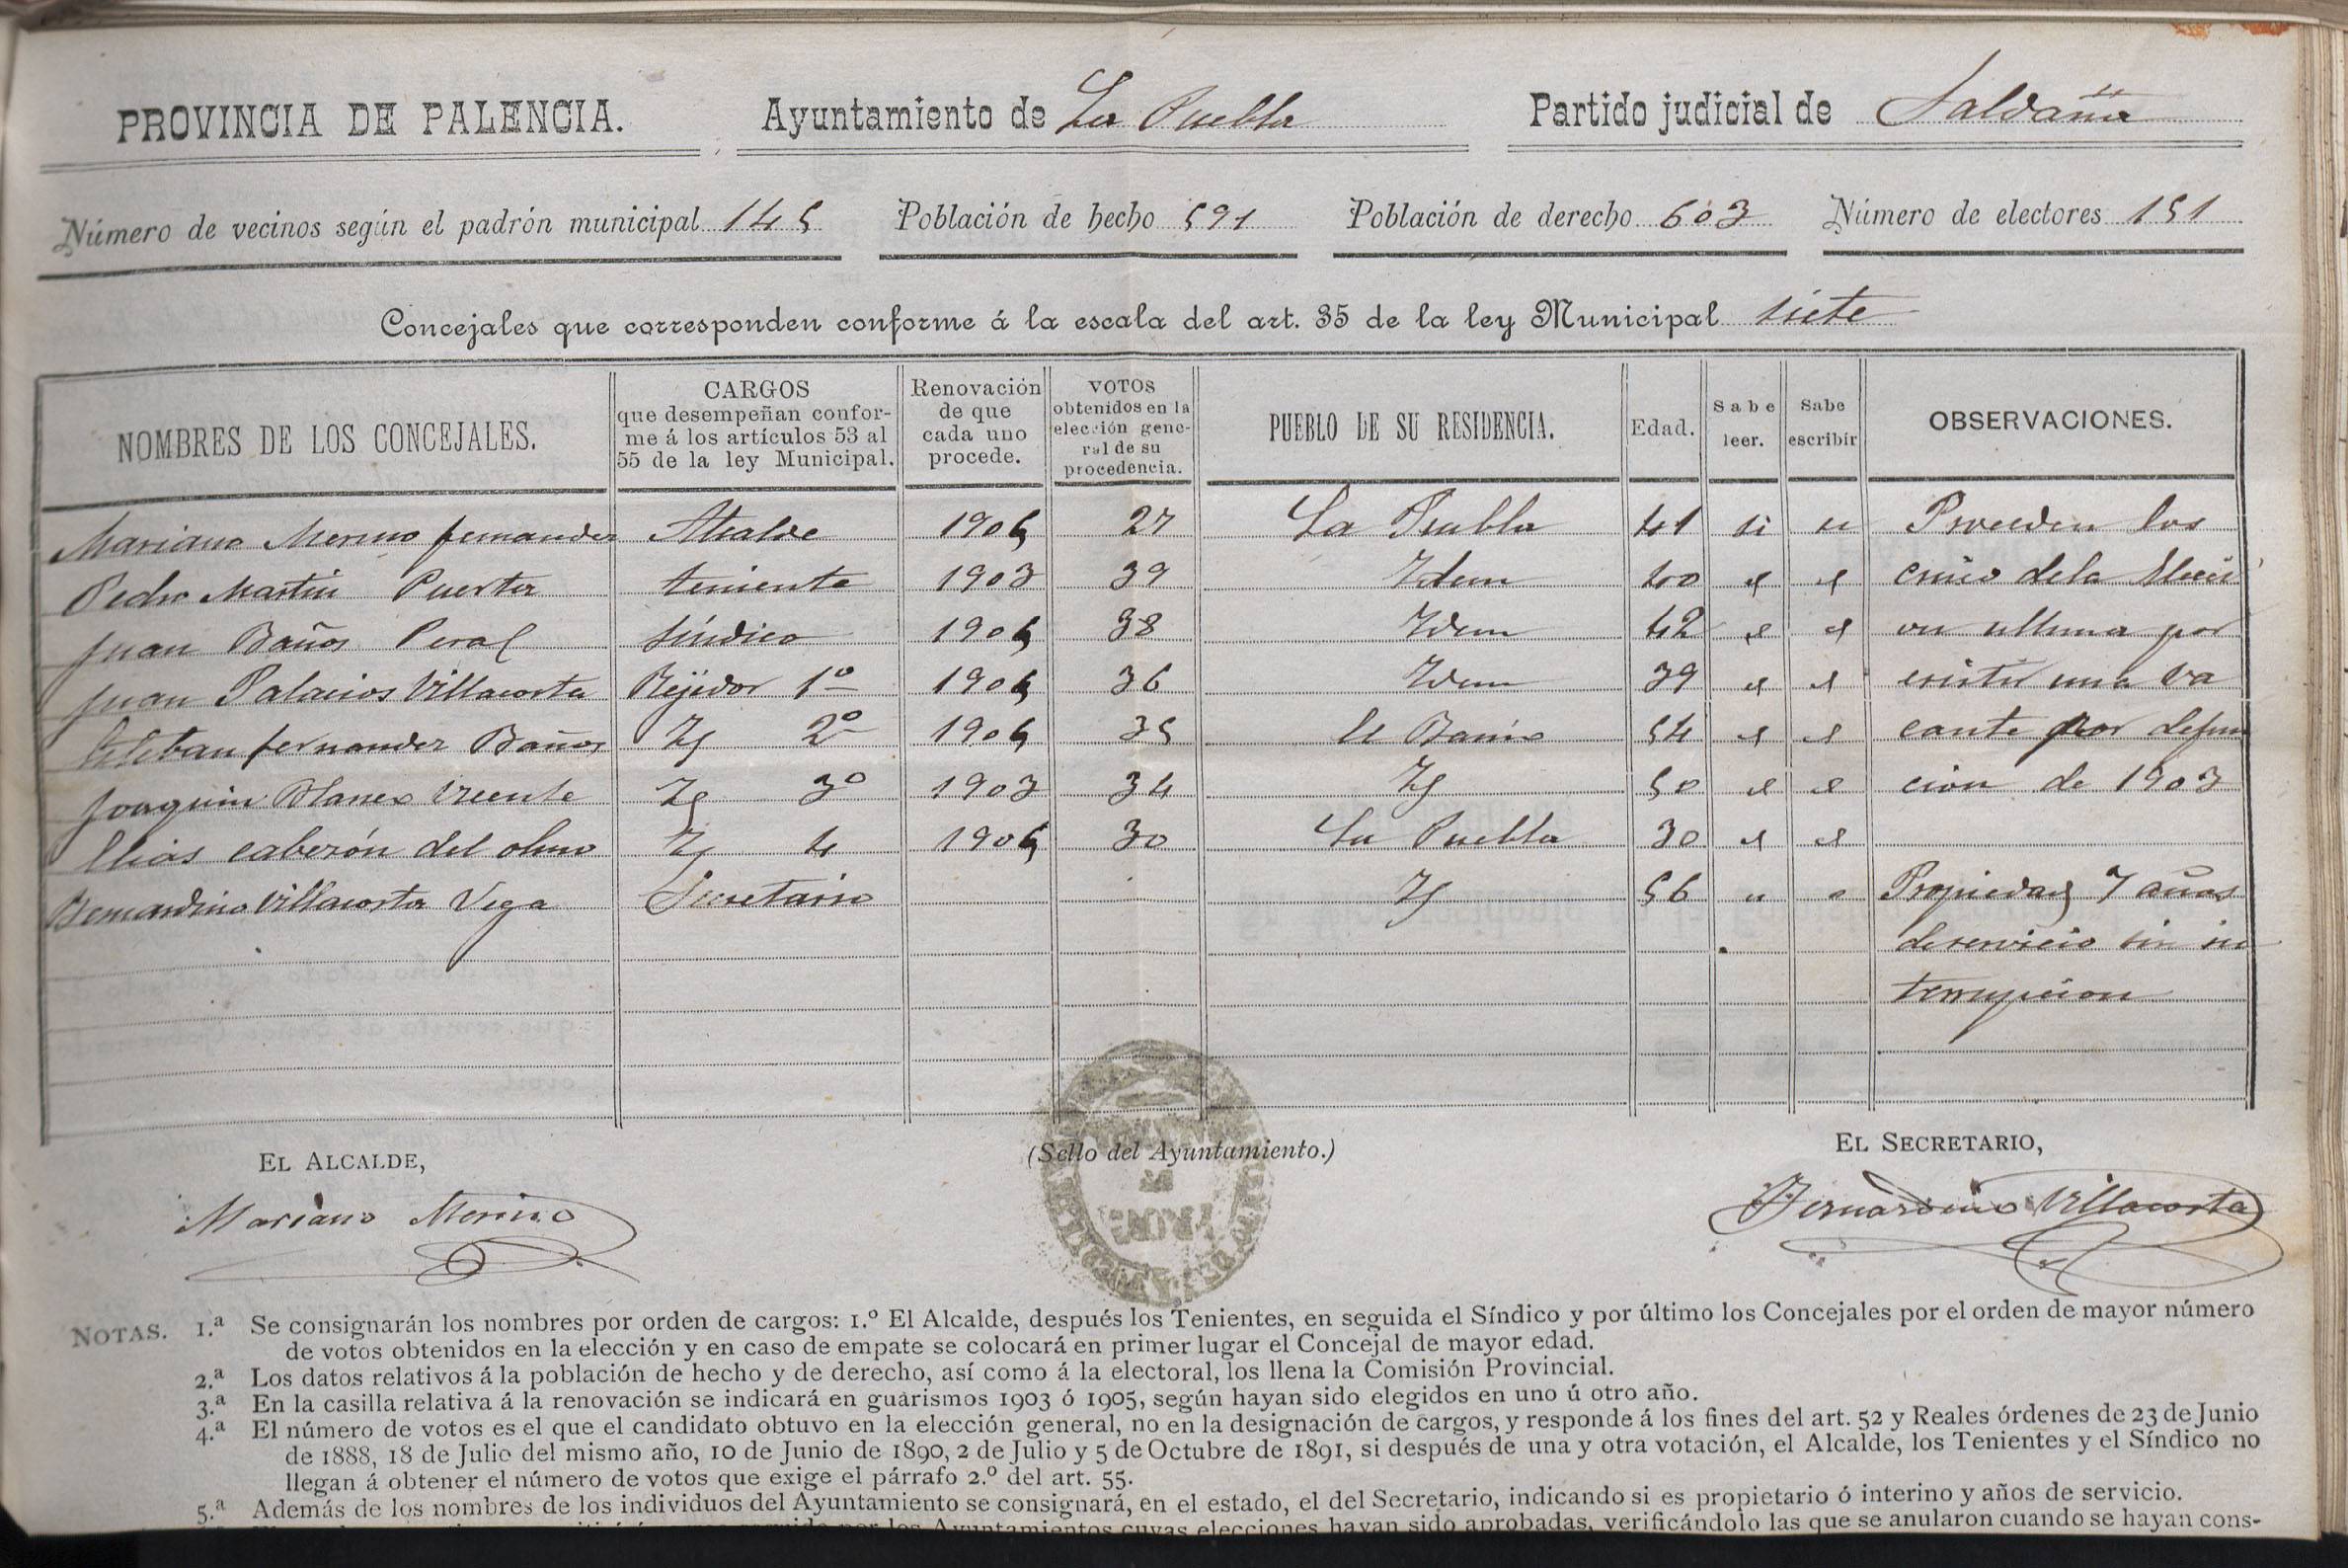 PROVINCIA DE PALENCIA. Ayuntamiento de La Puebla Partido judicial de Saldaña
Número de vecinos según el padrón municipal 145 Población de hecho 591 Población de derecho 603 Número de electores 151
Concejales que corresponden conforme á la escala del art. 35 de la ley Municipal siete
NOMBRES DE LOS CONCEJALES. CARGOS que desempeñan conforme á los artículos 53 al 55 de la ley Municipal. Renovación de que cada uno procede. VOTOS obtenidos en la elección general de su procedencia. PUEBLO DE SU RESIDENCIA. Edad. Sabe leer. Sabe escribir OBSERVACIONES.
Mariano Merino fernandez Alcalde 1905 27 La Puebla 41 si " Proceden los
Pedro Martin Puertas teniente 1903 39 Idem 40 " " cinco de la Elecci
Juan Baños Peral sindico 1905 38 Idem 42 " " on ultima por
Juan Palacios Villacorta Rejidor 1º 1905 36 Idem 39 " " existir una va
Esteban fernandez Baños Id 2º 1905 35 El Barrio 54 " " cante por defun
Joaquin Blanco Vicente Id 3º 1903 34 Id 50 " " cion de 1903
Elias caberón del olmo Id 4 1905 30 La Puebla 30 " "
Bernardino Villacorta Vega Secretario Id 56 " " Propiedad 7 años
de servicio sin in
terrupcion
EL ALCALDE, (Sello del Ayuntamiento.) EL SECRETARIO,
Mariano Merino Bernardino Villacorta
NOTAS. 1.ª Se consignarán los nombres por orden de cargos: 1.º El Alcalde, después los Tenientes, en seguida el Síndico y por último los Concejales por el orden de mayor número
de votos obtenidos en la elección y en caso de empate se colocará en primer lugar el Concejal de mayor edad.
2.ª Los datos relativos á la población de hecho y de derecho, así como á la electoral, los llena la Comisión Provincial.
3.ª En la casilla relativa á la renovación se indicará en guarismos 1903 ó 1905, según hayan sido elegidos en uno ú otro año.
4.ª El número de votos es el que el candidato obtuvo en la elección general, no en la designación de cargos, y responde á los fines del art. 52 y Reales órdenes de 23 de Junio
de 1888, 18 de Julio del mismo año, 10 de Junio de 1890, 2 de Julio y 5 de Octubre de 1891, si después de una y otra votación, el Alcalde, los Tenientes y el Síndico no
llegan á obtener el número de votos que exige el párrafo 2.º del art. 55.
5.ª Además de los nombres de los individuos del Ayuntamiento se consignará, en el estado, el del Secretario, indicando si es propietario ó interino y años de servicio.
por los Ayuntamientos cuyas elecciones hayan sido aprobadas, verificándolo las que se anularon cuando se hayan cons-